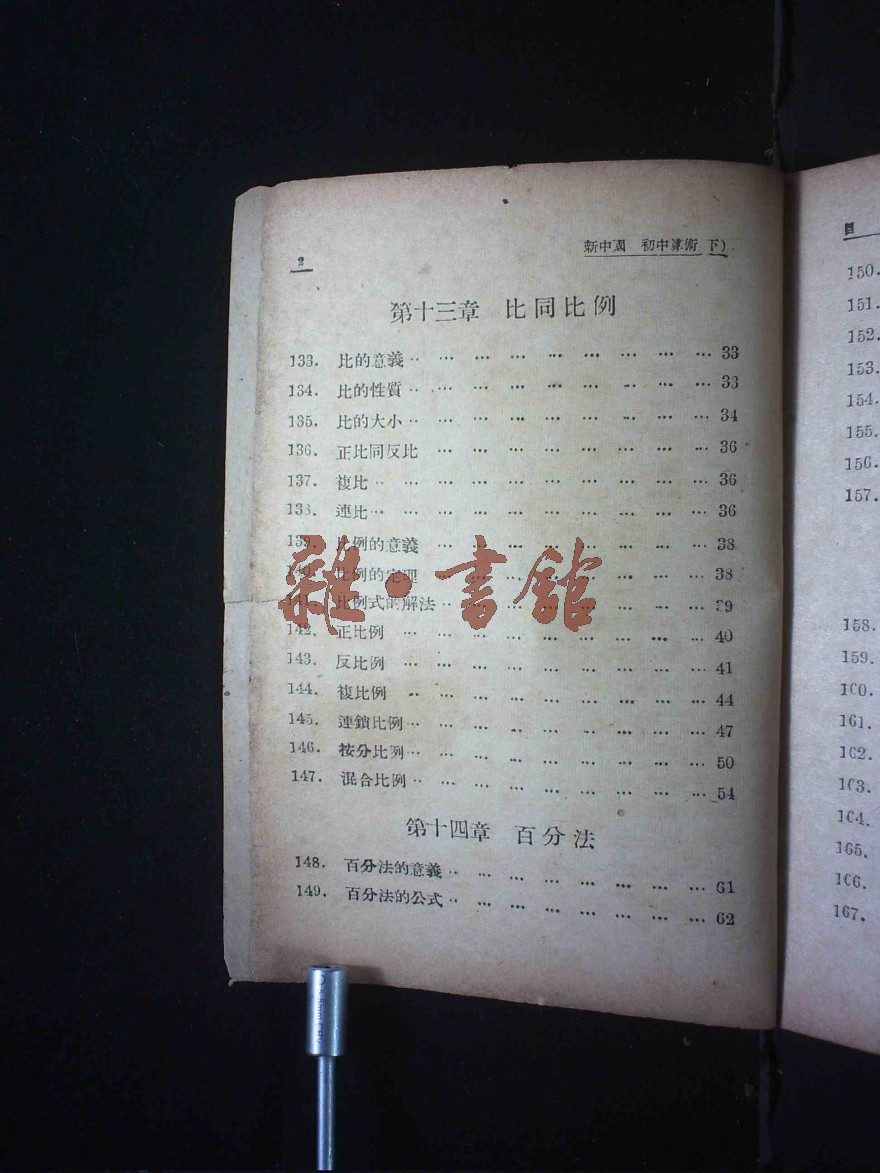 2
新中國 初中算術 下)
第十三章 比同比例
133. 比的意義 33
134. 比的性質 33
135. 比的大小 34
136. 正比同反比 36
137. 複比 36
138. 連比 36
139. 比例的意義 38
140. 比例的定理 38
141. 比例式的解法 39
142. 正比例 40
143. 反比例 41
144. 複比例 44
145. 連鎖比例 47
146. 按分比例 50
147. 混合比例 54
第十四章 百分法
148. 百分法的意義 61
149. 百分法的公式 62
雜·書館
目
150.
151.
152.
153.
154.
155.
156.
157.
158.
159.
160.
161.
162.
163.
164.
165.
166.
167.